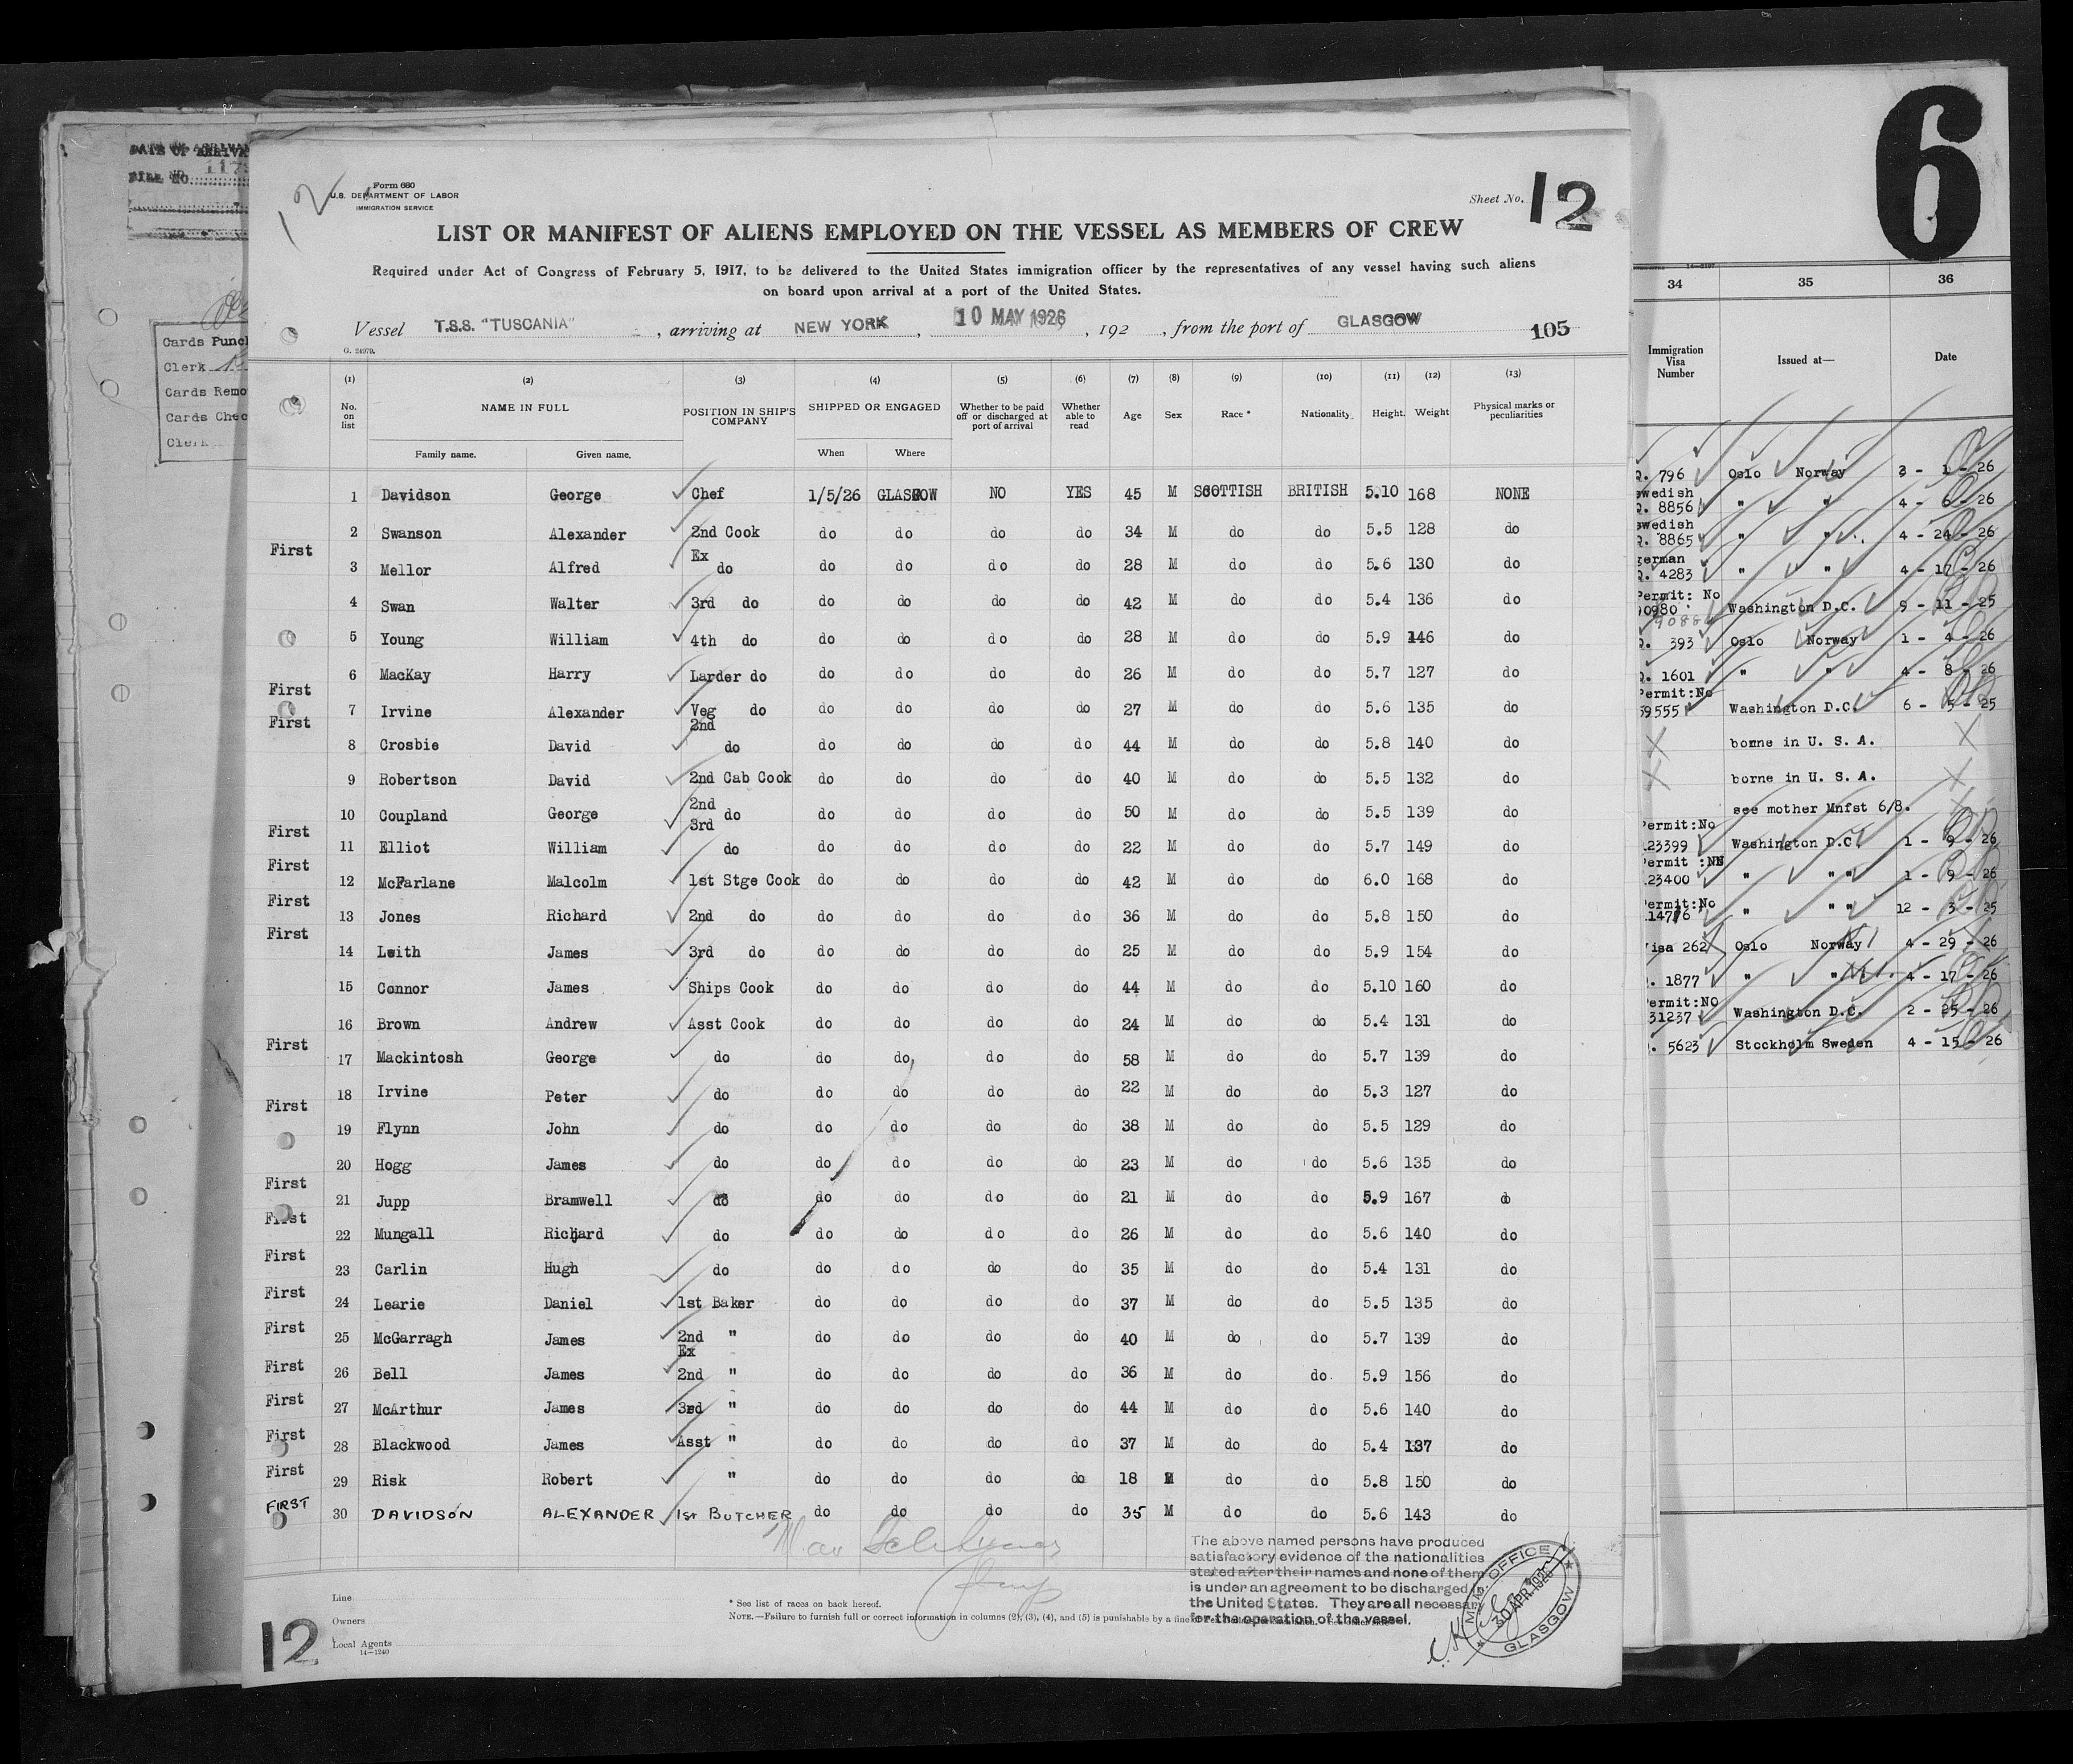 DATE OF ARRIVA
FILE NO. 117
Cards Punc
Clerk
Cards Remo
Cards Chec
Clerk
12
Form 680
U.S. DEPARTMENT OF LABOR
IMMIGRATION SERVICE
Sheet No. 12
LIST OR MANIFEST OF ALIENS EMPLOYED ON THE VESSEL AS MEMBERS OF CREW
Required under Act of Congress of February 5, 1917, to be delivered to the United States immigration officer by the representatives of any vessel having such aliens
on board upon arrival at a port of the United States.
Vessel T.S.S. "TUSCANIA", arriving at NEW YORK, 10 MAY 1926, 192 , from the port of GLASGOW 105
G. 24979.
(1) (2) (3) (4) (5) (6) (7) (8) (9) (10) (11) (12) (13)
No. on list NAME IN FULL POSITION IN SHIP'S COMPANY SHIPPED OR ENGAGED Whether to be paid off or discharged at port of arrival Whether able to read Age Sex Race* Nationality Height. Weight Physical marks or peculiarities
Family name. Given name. When Where
1 Davidson George Chef 1/5/26 GLASGOW NO YES 45 M SCOTTISH BRITISH 5.10 168 NONE
2 Swanson Alexander 2nd Cook do do do do 34 M do do 5.5 128 do
First 3 Mellor Alfred Ex do do do do do 28 M do do 5.6 130 do
4 Swan Walter 3rd do do do do do 42 M do do 5.4 136 do
5 Young William 4th do do do do do 28 M do do 5.9 146 do
6 MacKay Harry Larder do do do do do 26 M do do 5.7 127 do
First 7 Irvine Alexander Veg do do do do do 27 M do do 5.6 135 do
First 8 Crosbie David 2nd do do do do do 44 M do do 5.8 140 do
9 Robertson David 2nd Cab Cook do do do do 40 M do do 5.5 132 do
10 Coupland George 2nd do do do do do 50 M do do 5.5 139 do
First 11 Elliot William 3rd do do do do do 22 M do do 5.7 149 do
First 12 McFarlane Malcolm 1st Stge Cook do do do do 42 M do do 6.0 168 do
First 13 Jones Richard 2nd do do do do do 36 M do do 5.8 150 do
First 14 Leith James 3rd do do do do do 25 M do do 5.9 154 do
15 Connor James Ships Cook do do do do 44 M do do 5.10 160 do
16 Brown Andrew Asst Cook do do do do 24 M do do 5.4 131 do
First 17 Mackintosh George do do do do do 58 M do do 5.7 139 do
18 Irvine Peter do do do do do 22 M do do 5.3 127 do
First 19 Flynn John do do do do do 38 M do do 5.5 129 do
20 Hogg James do do do do do 23 M do do 5.6 135 do
First 21 Jupp Bramwell do do do do do 21 M do do 5.9 167 do
First 22 Mungall Richard do do do do do 26 M do do 5.6 140 do
First 23 Carlin Hugh do do do do do 35 M do do 5.4 131 do
First 24 Learie Daniel 1st Baker do do do do 37 M do do 5.5 135 do
First 25 McGarragh James 2nd " do do do do 40 M do do 5.7 139 do
First 26 Bell James Ex 2nd " do do do do 36 M do do 5.9 156 do
First 27 McArthur James 3rd " do do do do 44 M do do 5.6 140 do
First 28 Blackwood James Asst " do do do do 37 M do do 5.4 137 do
First 29 Risk Robert " do do do do 18 M do do 5.8 150 do
FIRST 30 DAVIDSON ALEXANDER 1st BUTCHER do do do do 35 M do do 5.6 143 do
The above named persons have produced
satisfactory evidence of the nationalities
stated after their names and none of them
is under an agreement to be discharged in
the United States. They are all necessary
for the operation of the vessel.
M.M. OFFICE
30 APR 1926
GLASGOW
Line
Owners
Local Agents
14—1240
* See list of races on back hereof.
NOTE.—Failure to furnish full or correct information in columns (2), (3), (4), and (5) is punishable by a fine
12
6
34 35 36
Immigration Visa Number Issued at— Date
Q. 796 Oslo Norway 3 - 1 - 26
swedish
Q. 8856 " " 4 - 6 - 26
swedish
Q. 8865 " " 4 - 24 - 26
german
Q. 4283 " " 4 - 17 - 26
Permit: No
90980 Washington D.C. 9 - 11 - 25
Q. 393 Oslo Norway 1 - 4 - 26
Q. 1601 " " 4 - 8 - 26
Permit:No
59555 Washington D.C. 6 - 5 - 25
X borne in U. S. A. X
X borne in U. S. A. X
see mother Mnfst 6/8.
Permit:No
23399 Washington D.C. 1 - 9 - 26
Permit :NN
23400 " " " 1 - 9 - 26
Permit:No
14776 " " " 12 - 3 - 25
isa 262 Oslo Norway 4 - 29 - 26
. 1877 " " 4 - 17 - 26
ermit:NO
31237 Washington D.C. 2 - 25 - 26
. 5623 Stockholm Sweden 4 - 15 - 26